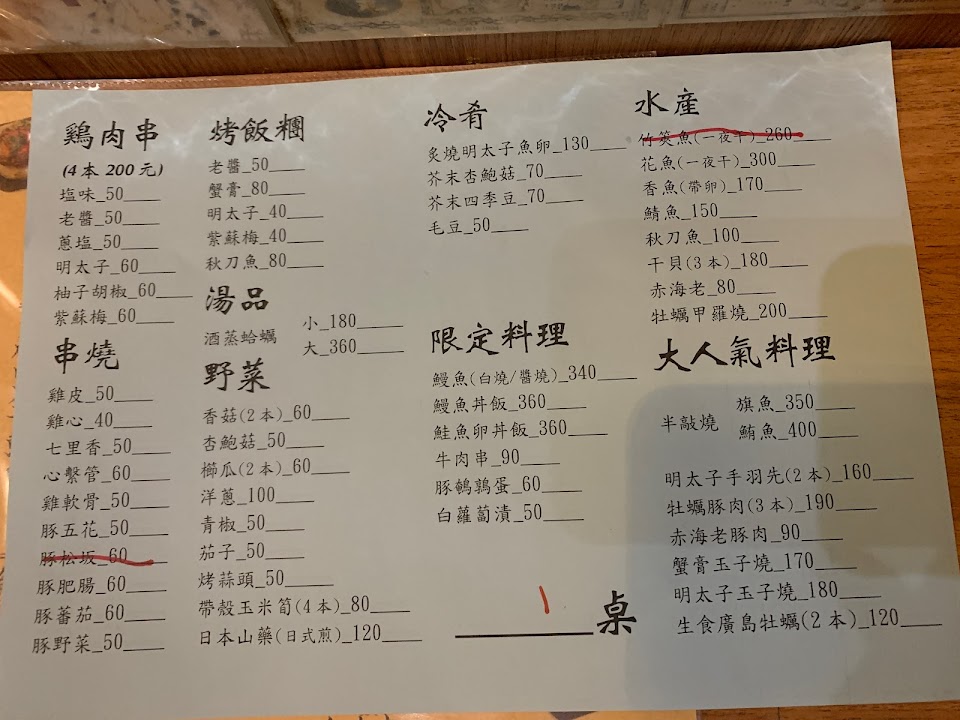 鷄肉串
(4本 200元)
塩味_50____
老醬_50____
蔥塩_50____
明太子_60____
柚子胡椒_60____
紫蘇梅_60____
串燒
雞皮_50____
雞心_40____
七里香_50____
心繫管_60____
雞軟骨_50____
豚五花_50____
豚松坂_60____
豚肥腸_60____
豚蕃茄_60____
豚野菜_50____
烤飯糰
老醬_50____
蟹膏_80____
明太子_40____
紫蘇梅_40____
秋刀魚_80____
湯品
酒蒸蛤蠣 小_180____
大_360____
野菜
香菇(2本)_60____
杏鮑菇_50____
櫛瓜(2本)_60____
洋蔥_100____
青椒_50____
茄子_50____
烤蒜頭_50____
帶殼玉米筍(4本)_80____
日本山藥(日式煎)_120____
冷肴
炙燒明太子魚卵_130____
芥末杏鮑菇_70____
芥末四季豆_70____
毛豆_50____
限定料理
鰻魚(白燒/醬燒)_340____
鰻魚丼飯_360____
鮭魚卵丼飯_360____
牛肉串_90____
豚鵪鶉蛋_60____
白蘿蔔漬_50____
1 桌
水産
竹筴魚(一夜干)_260____
花魚(一夜干)_300____
香魚(帶卵)_170____
鯖魚_150____
秋刀魚_100____
干貝(3本)_180____
赤海老_80____
牡蠣甲羅燒_200____
大人氣料理
半敲燒 旗魚_350____
鮪魚_400____
明太子手羽先(2本)_160____
牡蠣豚肉(3本)_190____
赤海老豚肉_90____
蟹膏玉子燒_170____
明太子玉子燒_180____
生食廣島牡蠣(2本)_120____